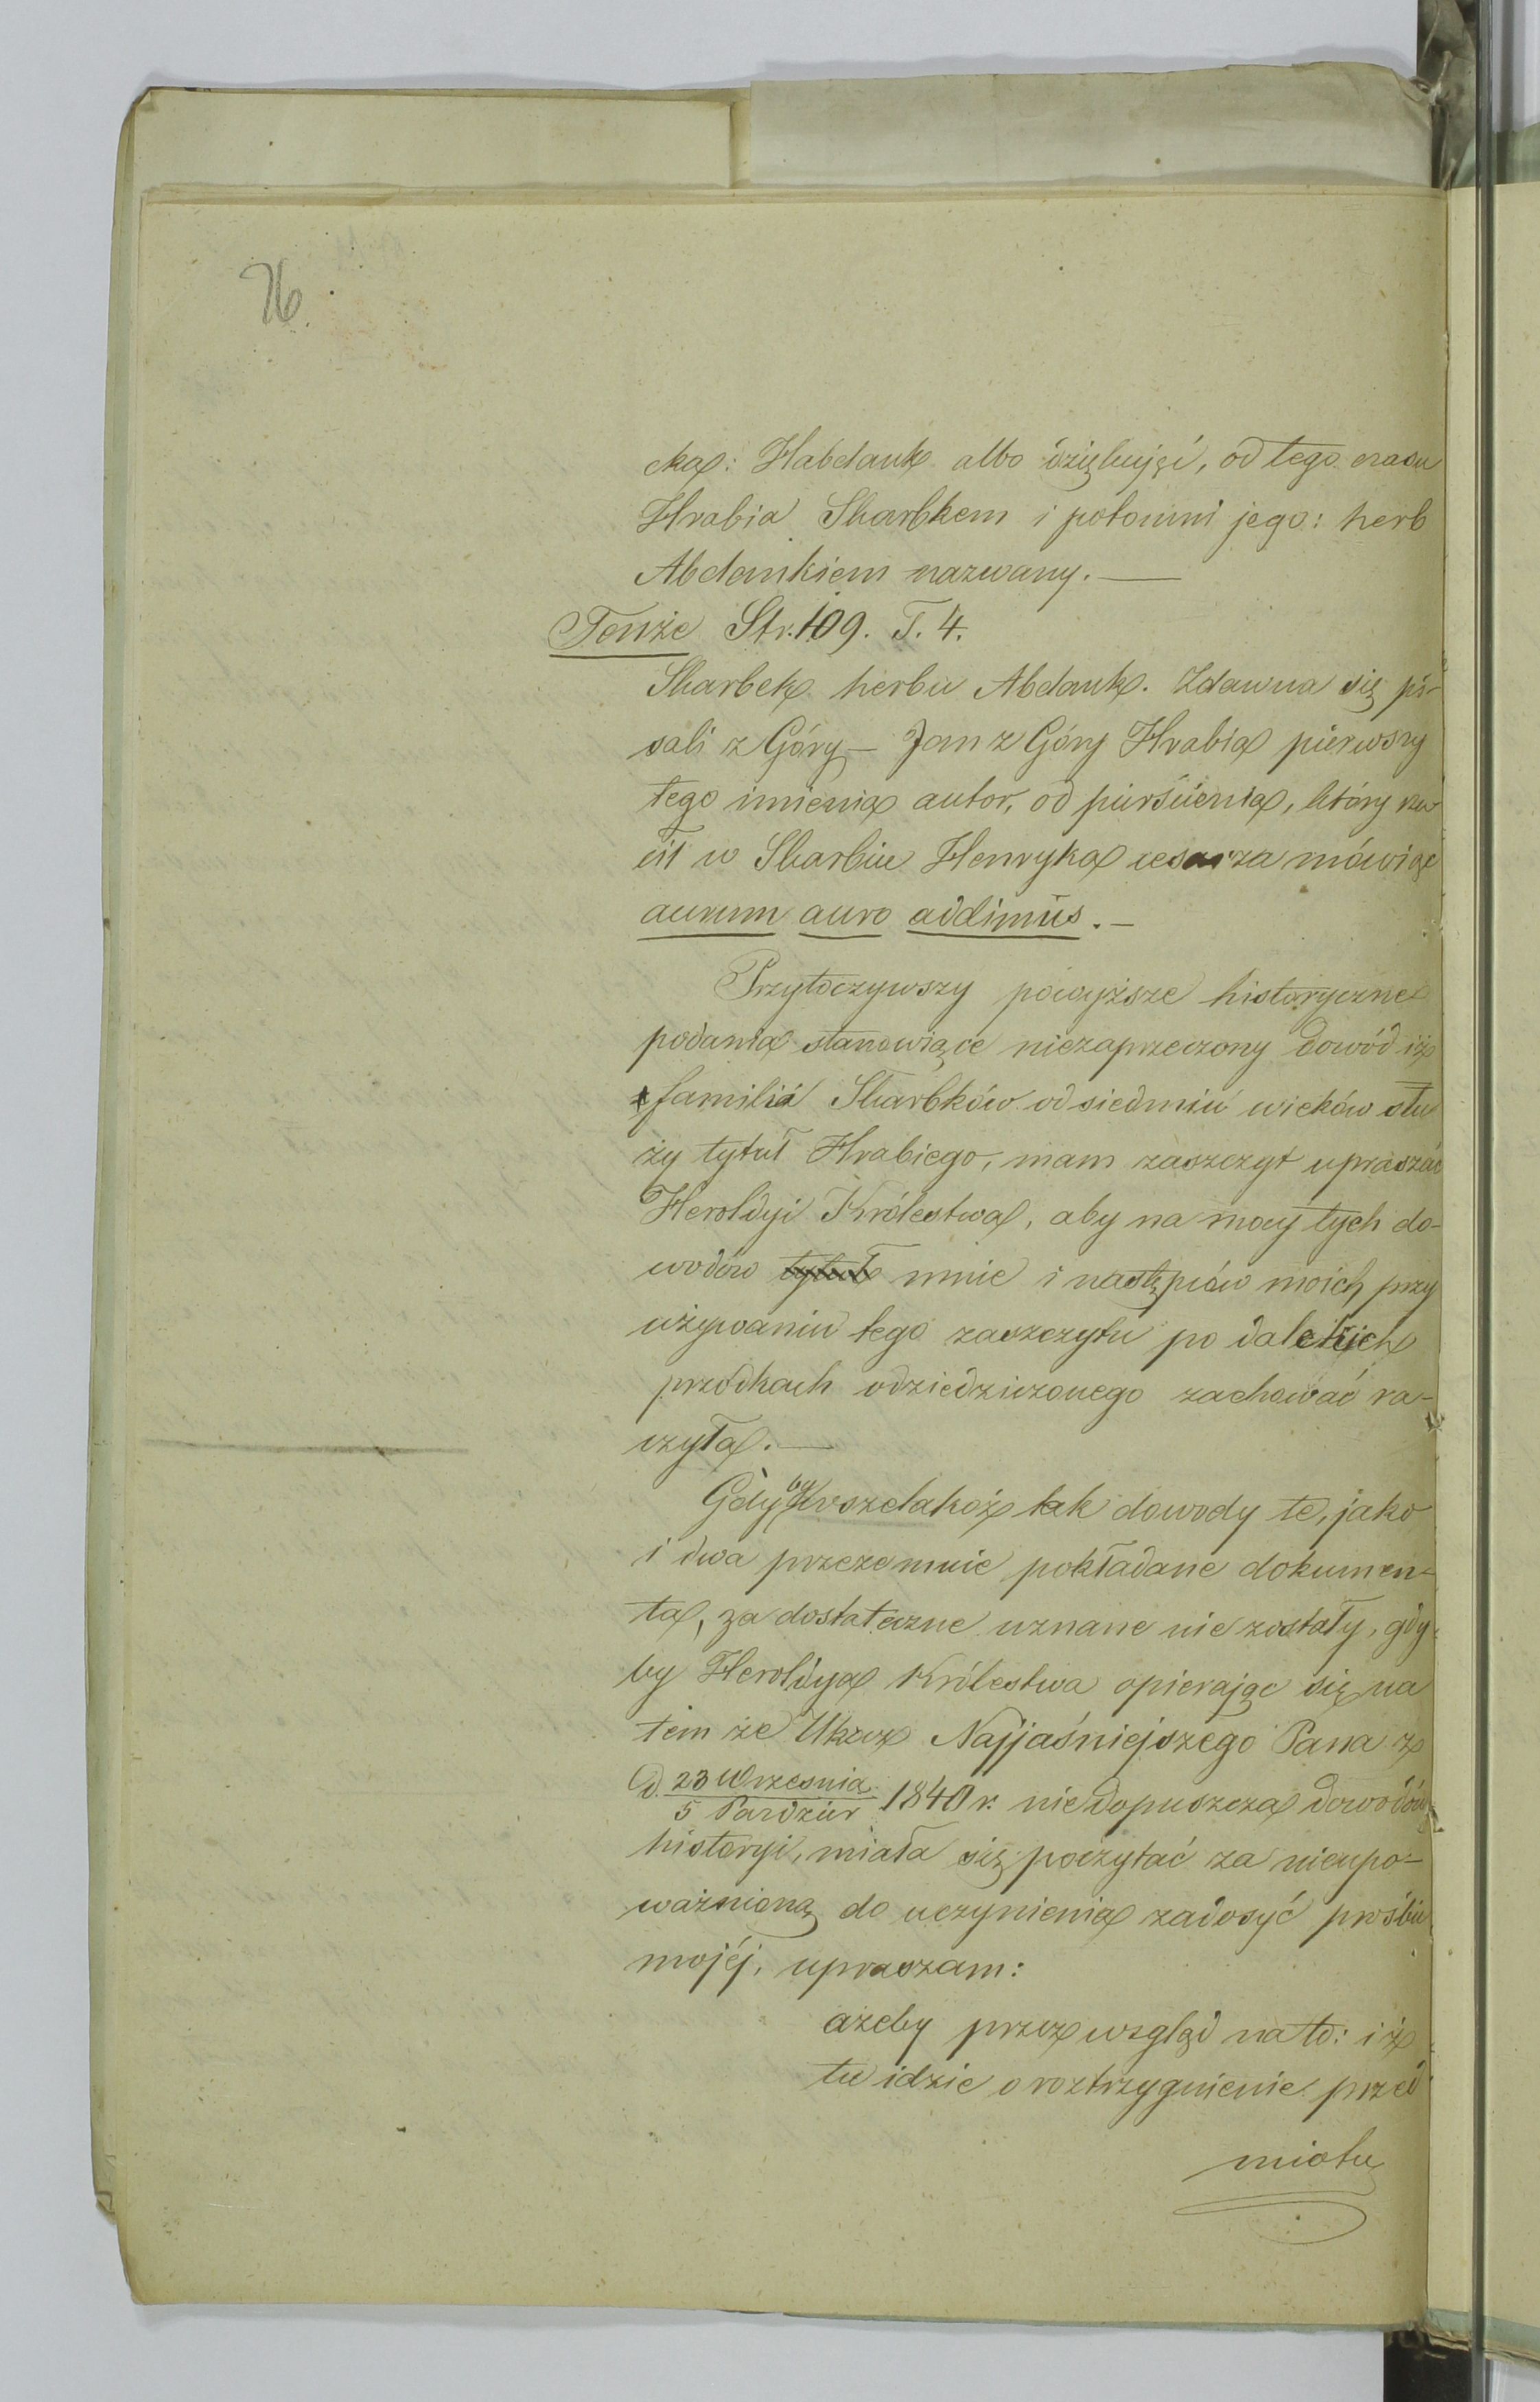 76.
cka: Habdank albo dziękuję ci, od tego czasu
Hrabia Skarbkem i potomni jego: herb
Abdankiem nazwany. —
Tenże Str. 109. T. 4.
Skarbek herbu Abdank. Zdawna się pi-
sali z Góry — Jan z Góry Hrabia pierwszy
tego imienia autor, od pierścienia, który rzu
cił w Skarbiec Henryka cesarza mówiąc
aurum auro addimus. —
Przytoczywszy powyższe historyczne
podania stanowiące niezaprzeczony dowód iż
familiá Skarbków od siedmiu wieków słu
ży tytuł Hrabiego, mam zaszczyt upraszać
Heroldyi Królestwa, aby na mocy tych do-
wodów tytuł mnie i następców moich przy
używaniu tego zaszczytu po dalekich
przodkach odziedziczonego zachować ra-
czyła. —
Gdyby wszelakoż tak dowody te, jako
i dwa przezemnie pokładane dokumen-
ta, za dostateczne uznane nie zostały, gdy-
by Heroldya Królestwa opierając się na
tem że Ukaz Najjaśniejszego Pana z
d. 23 Wrzesnia / 5 Pazdzier 1840 r. niedopuszcza dowodów
historyi, miała się poczytać za nieupo-
ważnioną do uczynienia zadosyć prośbie
mojéj, upraszam:
ażeby przez wzgląd na to: iż
tu idzie o roztrzygnienie przed
miotu